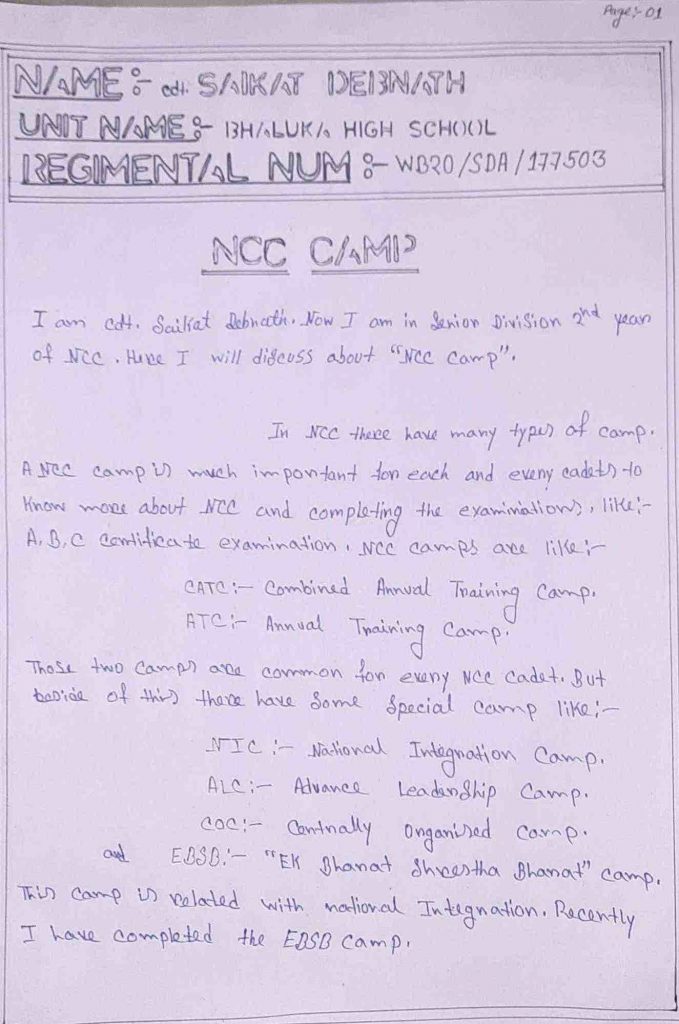 Page:- 01
NAME :- cdt. SAIKAT DEBNATH
UNIT NAME :- BHALUKA HIGH SCHOOL
REGIMENTAL NUM :- WB20/SDA/177503
NCC CAMP
I am cdt. Saikat Debnath. Now I am in Senior Division 2nd year
of NCC. Here I will discuss about "NCC Camp".
In NCC there have many types of camp.
A NCC camp is much important for each and every cadets to
know more about NCC and completing the examinations, like:-
A, B, C certificate examination. NCC camps are like:-
CATC:- Combined Annual Training Camp.
ATC:- Annual Training Camp.
Those two camps are common for every NCC cadet. But
beside of this there have some special camp like:-
NIC:- National Integration Camp.
ALC:- Advance Leadership Camp.
COC:- Centrally Organised Camp.
and EBSB:- "EK Bharat Shrestha Bharat" camp.
This camp is related with national Integration. Recently
I have completed the EBSB camp.